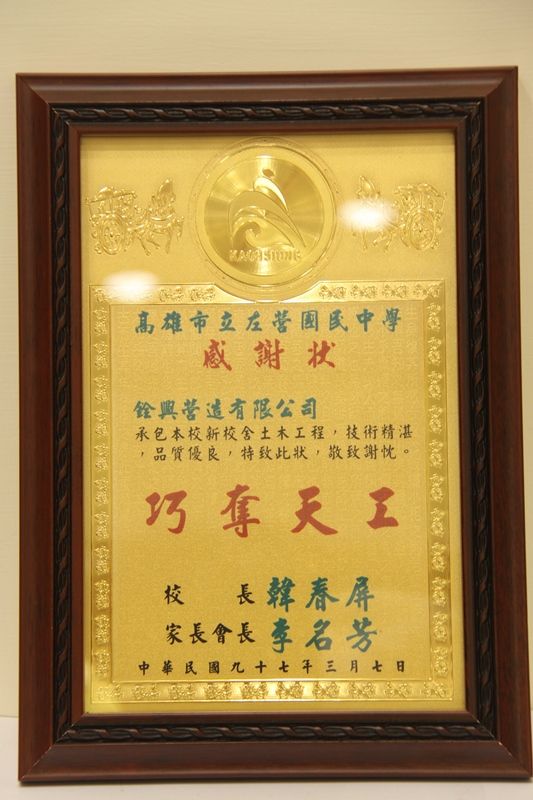 KAOHSIUNG
高雄市立左營國民中學
感謝狀
銓興營造有限公司
承包本校新校舍土木工程，技術精湛
，品質優良，特致此狀，敬致謝忱。
巧奪天工
校長 韓春屏
家長會長 李名芳
中華民國九十七年三月七日